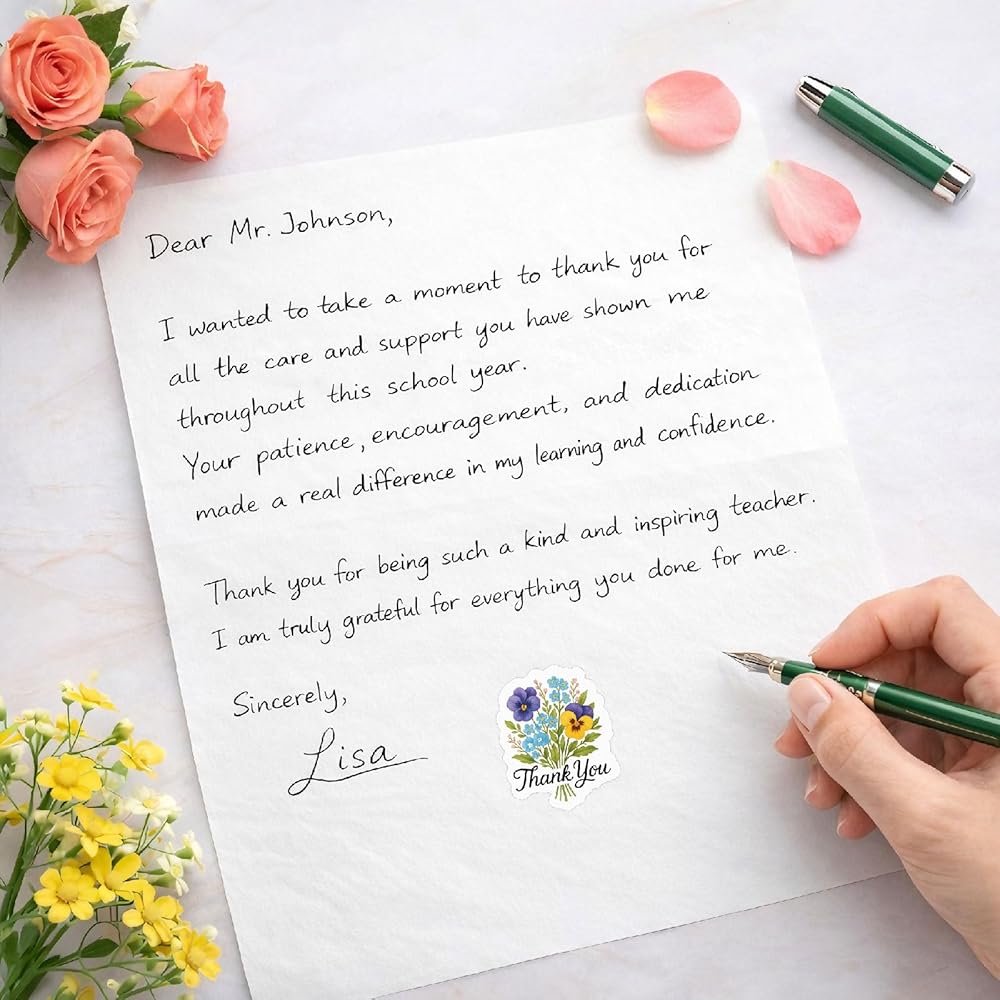 Dear Mr. Johnson,
I wanted to take a moment to thank you for
all the care and support you have shown me
throughout this school year.
Your patience, encouragement, and dedication
made a real difference in my learning and confidence.
Thank you for being such a kind and inspiring teacher.
I am truly grateful for everything you done for me.
Sincerely,
Lisa
Thank You